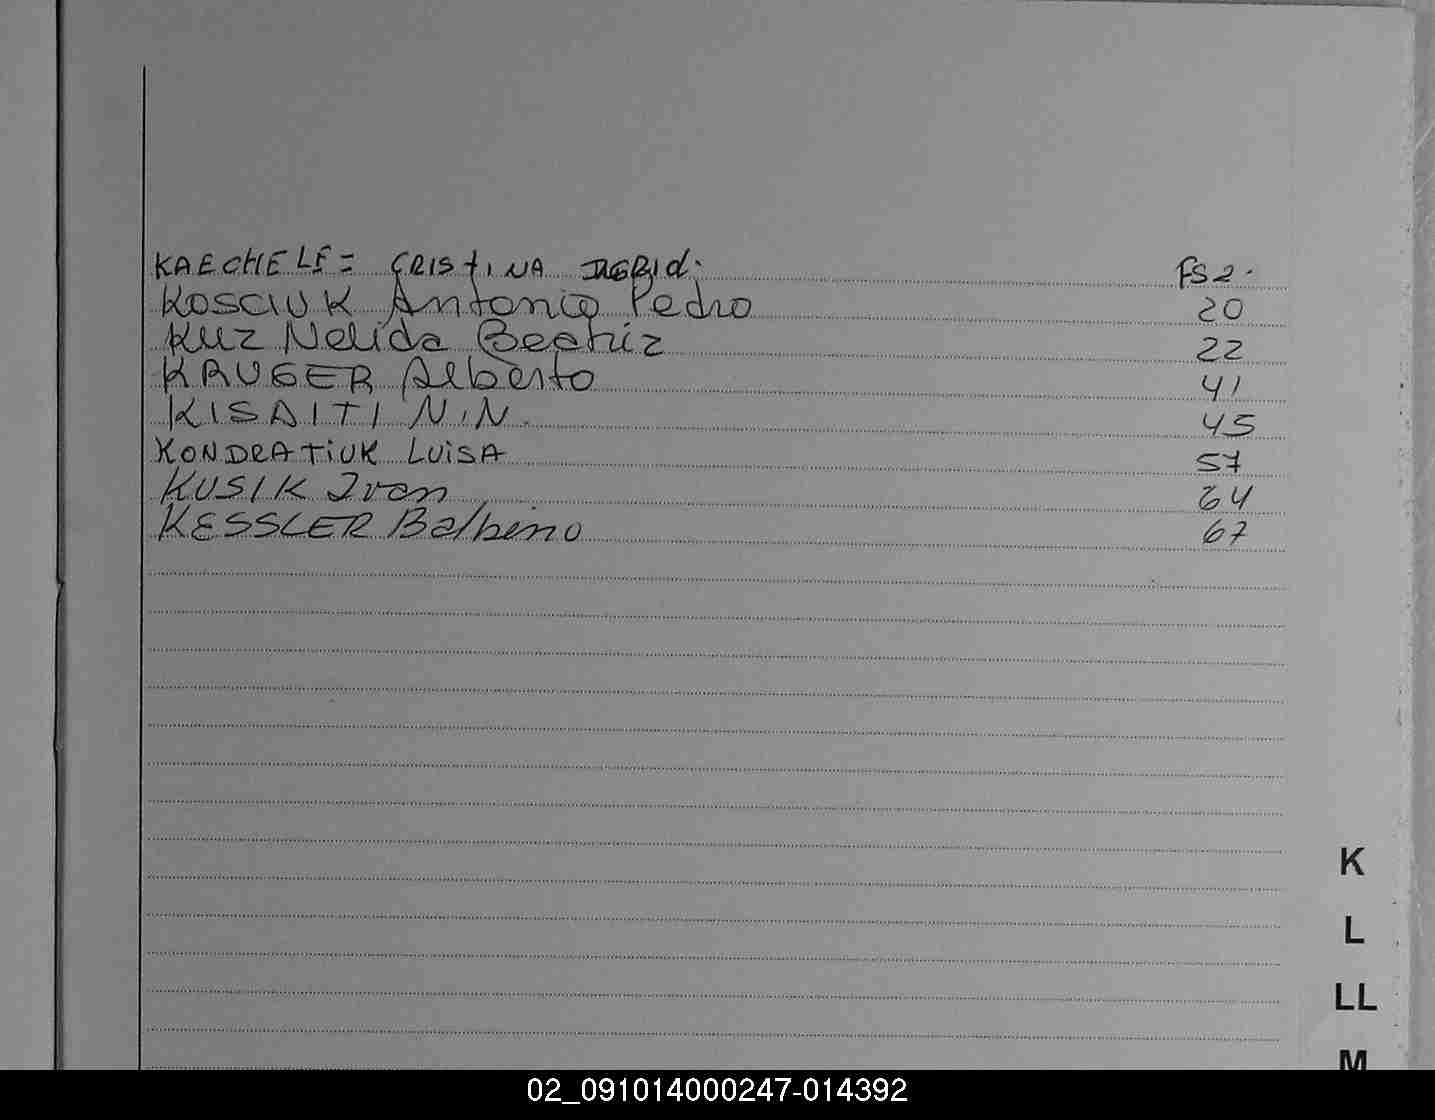 KAECHELE= CRISTINA INGRID. FS 2.
KOSCIUK Antonio Pedro 20
KUZ Nelida Beatriz 22
KRUGER Alberto 41
KISAITI N.N. 45
KONDRATIUK LUISA 57
KUSIK Ivan 64
KESSLER Balbino 67
K
L
LL
M
02_091014000247-014392